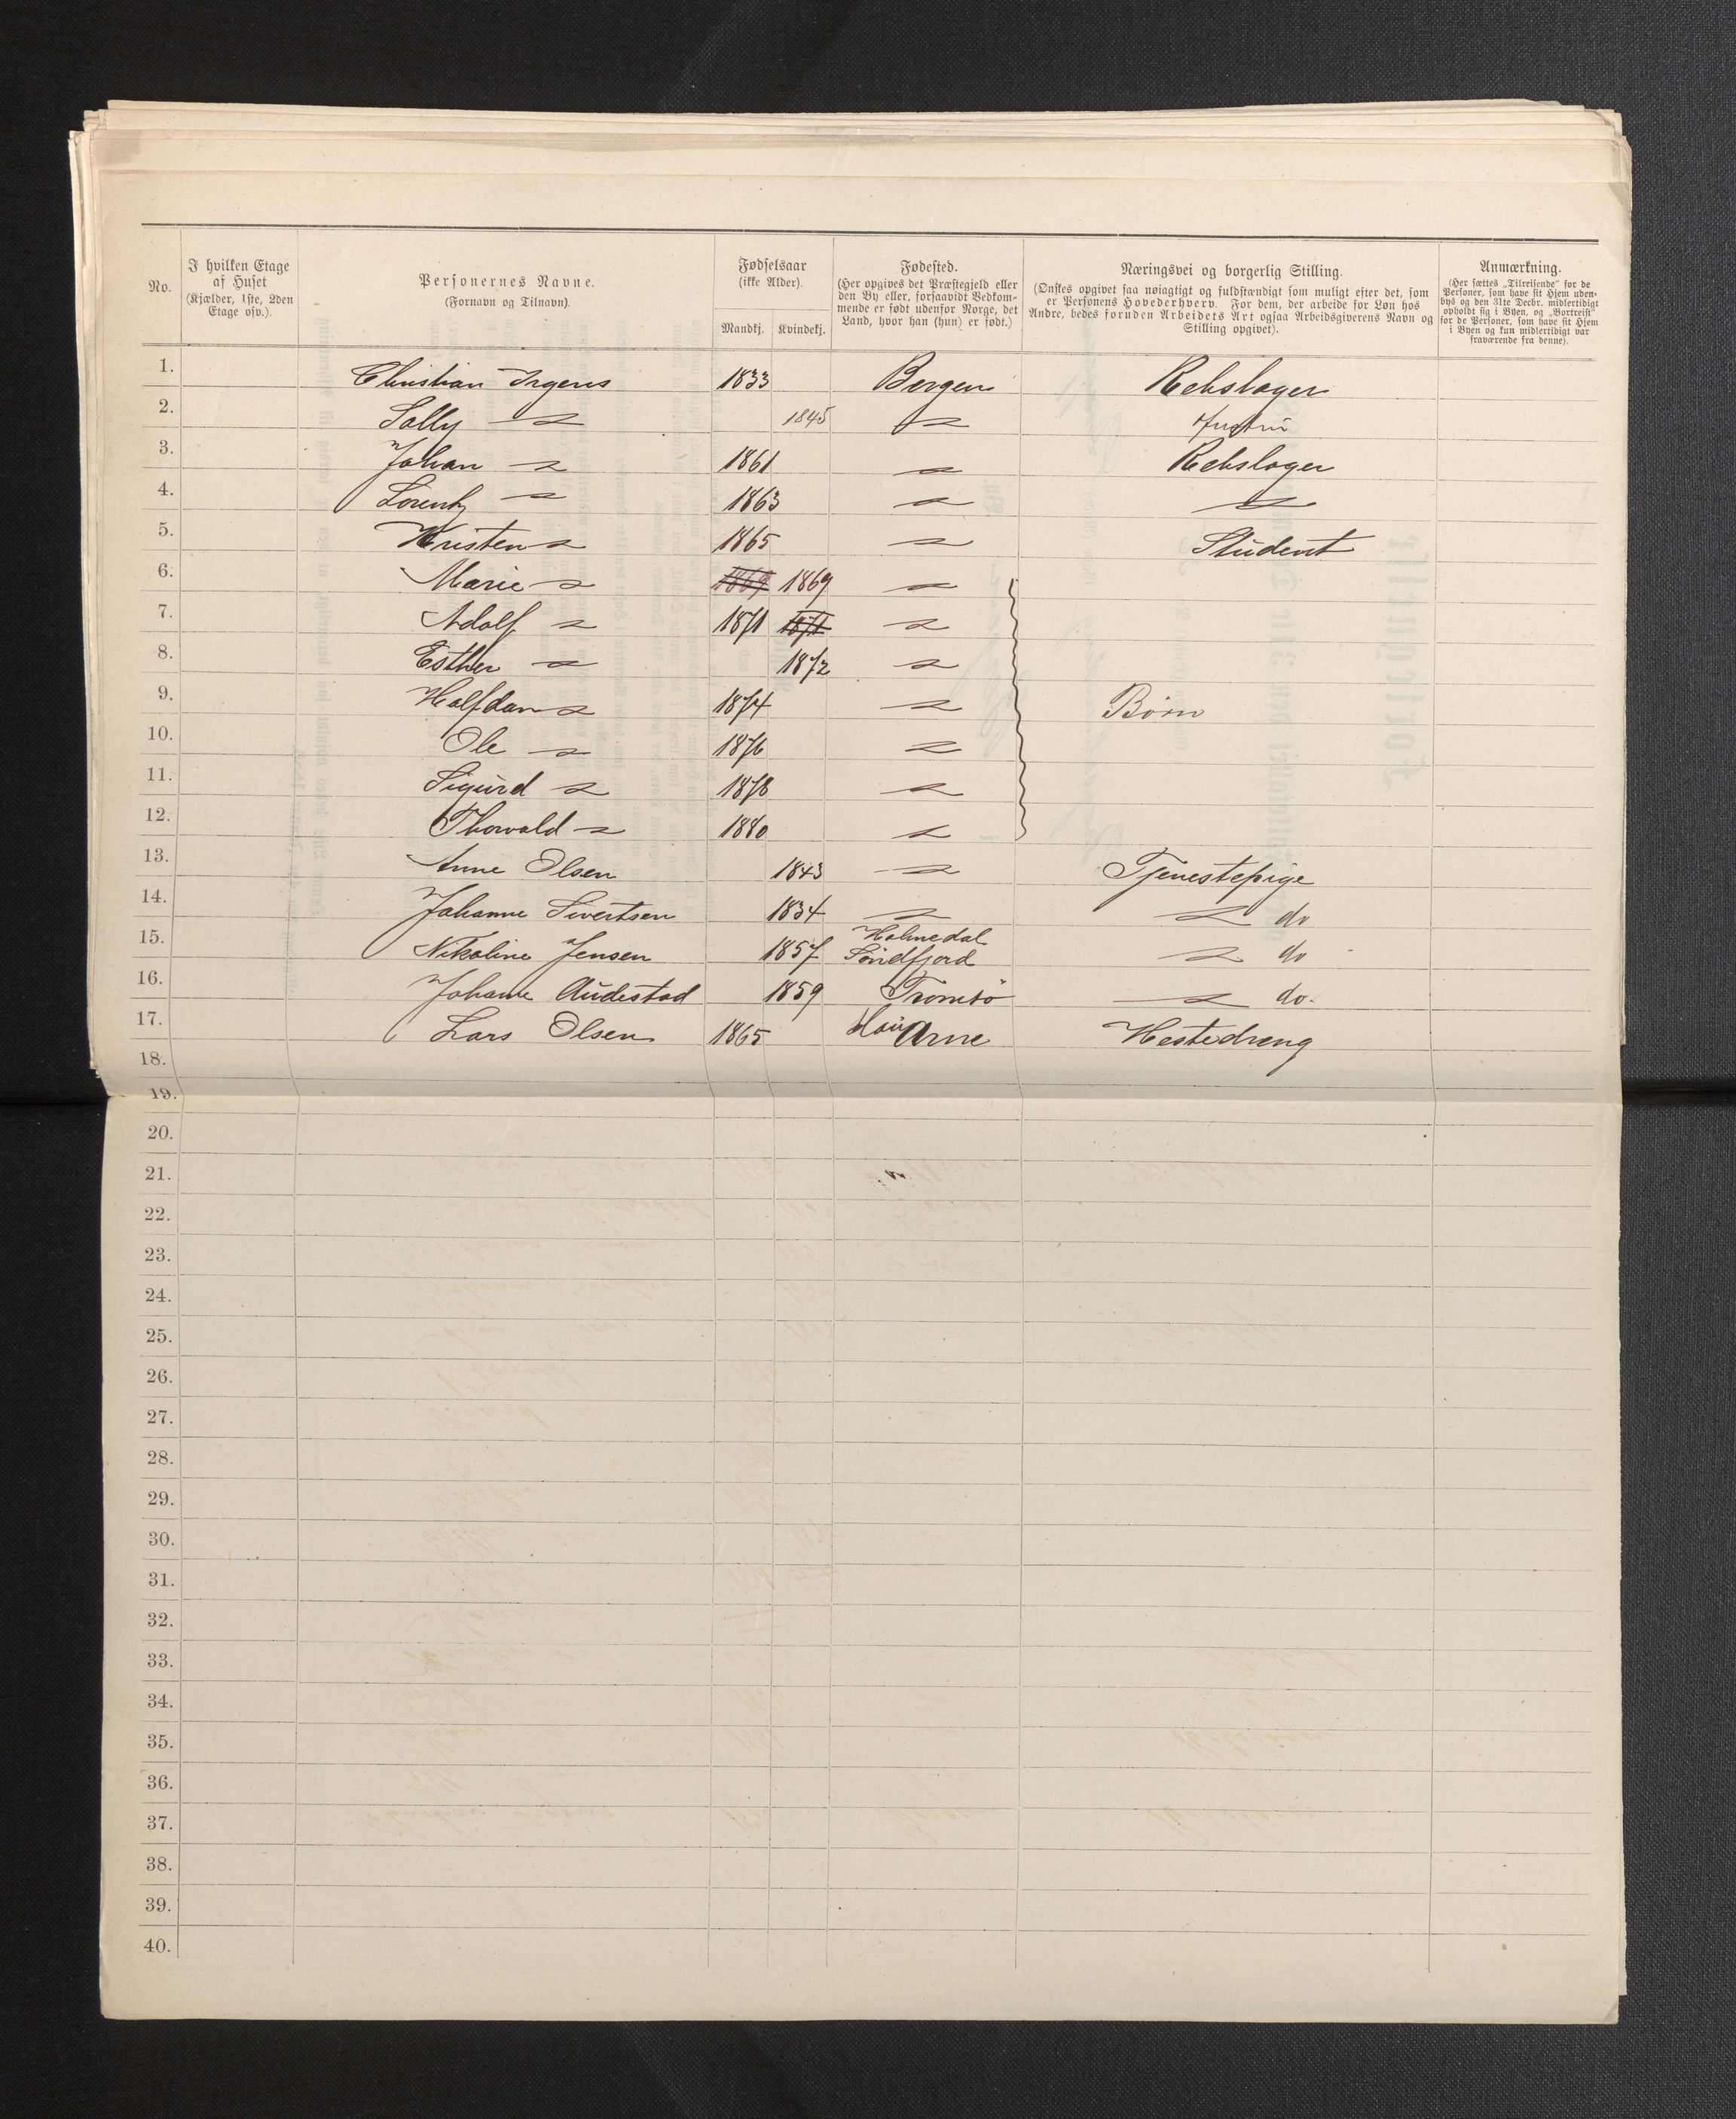 No.
I hvilken Etage
af Huset
(Kjælder, 1ste, 2den
Etage osv.).
Personernes Navne.
(Fornavn og Tilnavn).
Fødselsaar
(ikke Alder).
Mandkj. Kvindekj.
Fødested.
(Her opgives det Præstegjeld eller
den By eller, forsaavidt Vedkom-
mende er født udenfor Norge, det
Land, hvor han (hun) er født.)
Næringsvei og borgerlig Stilling.
(Ønskes opgivet saa nøiagtigt og fuldstændigt som muligt efter det, som
er Personens Hovederhverv. For dem, der arbeide for Løn hos
Andre, bedes foruden Arbeidets Art ogsaa Arbeidsgiverens Navn og
Stilling opgivet).
Anmærkning.
(Her sættes „Tilreisende" for de
Personer, som have sit Hjem uden-
bys og den 31te Decbr. midlertidigt
opholdt sig i Byen, og „Bortreist"
for de Personer, som have sit Hjem
i Byen og kun midlertidigt var
fraværende fra denne).
1. Christian Irgens 1833 Bergen Rebslager
2. Sally 1845 Hustru
3. Johan 1861 Rebslager
4. Lorentz 1863
5. Kristen 1865 Student
6. Marie 1869 1869
7. Adolf 1871 1871
8. Esther 1872
9. Halfdan 1874 Børn
10. Ole 1876
11. Sigurd 1878
12. Thorvald 1880
13. Anne Olsen 1843 Tjenestepige
14. Johanne Sivertsen 1834 do
Holmedal
15. Nikoline Jensen 1857 Søndfjord do
16. Johanne Audestad 1859 Tromsö do.
17. Lars Olsen 1865 Arne Hestedreng
18.
19.
20.
21.
22.
23.
24.
25.
26.
27.
28.
29.
30.
31.
32.
33.
34.
35.
36.
37.
38.
39.
40.